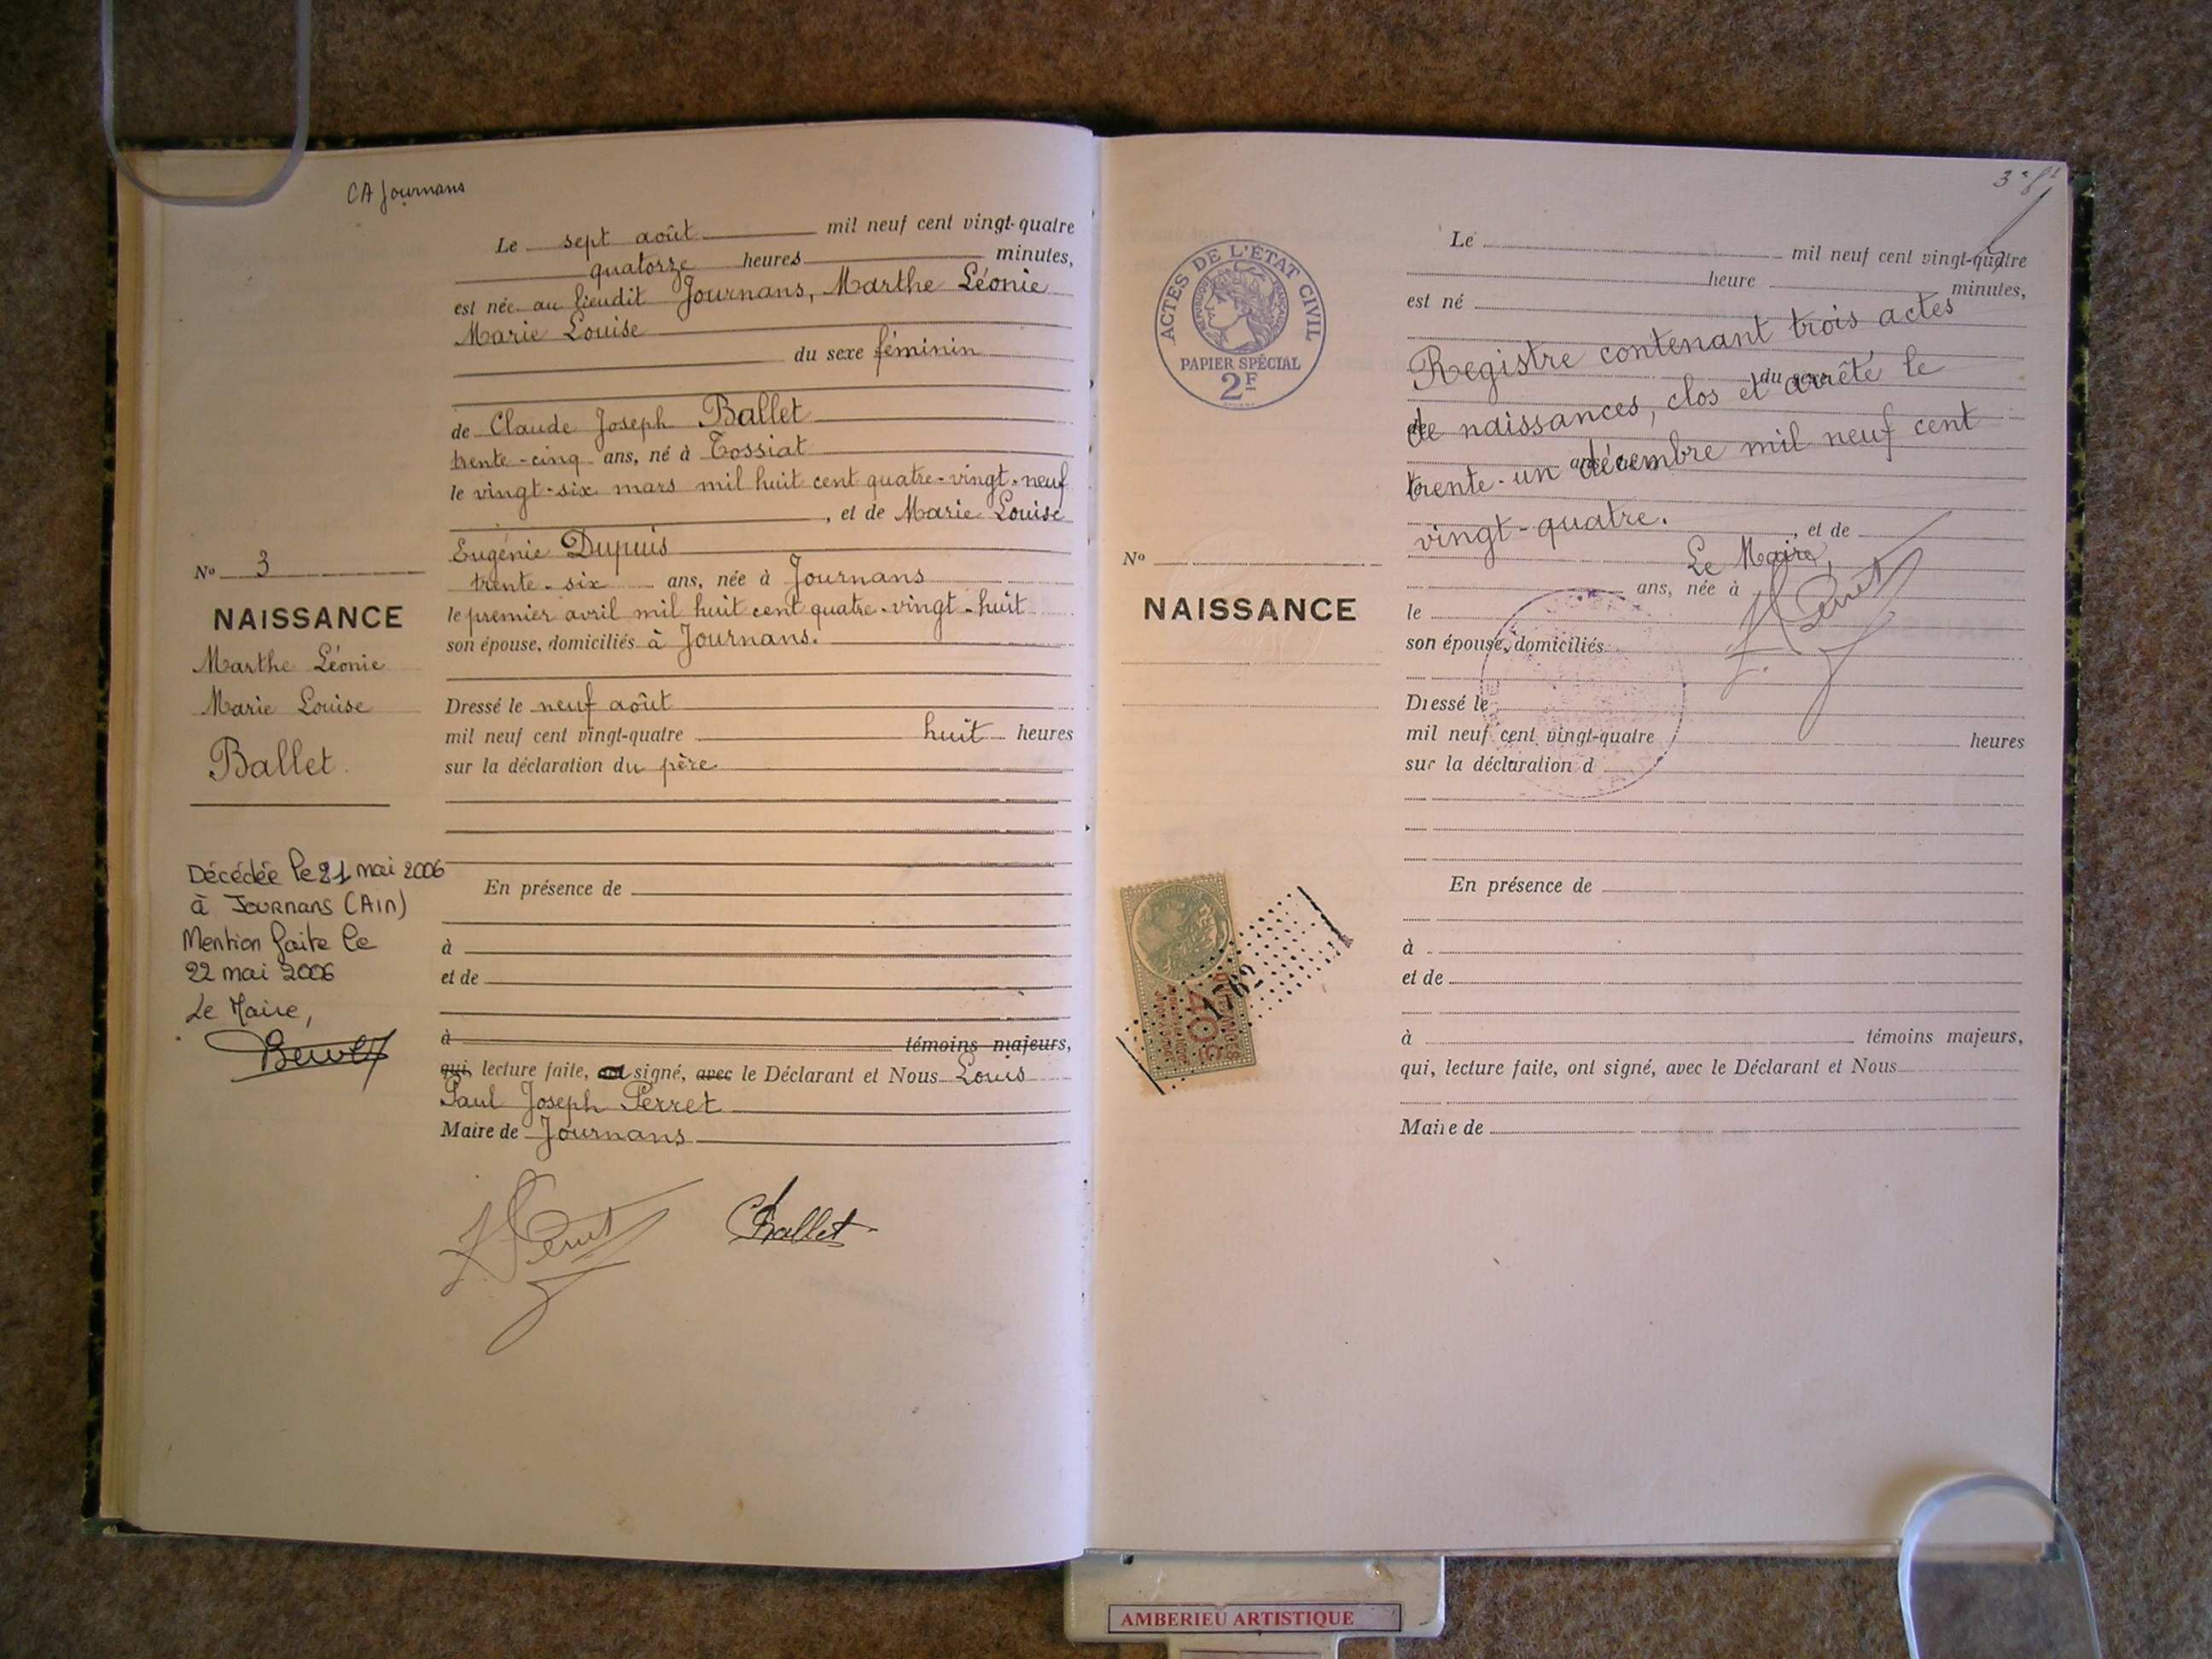 CA Journans
Le sept août mil neuf cent vingt-quatre
quatorze heures minutes,
est née au lieudit Journans, Marthe Léonie
Marie Louise
du sexe féminin
de Claude Joseph Ballet
trente-cinq ans, né à Tossiat
le vingt-six mars mil huit cent quatre-vingt-neuf
, et de Marie Louise
Eugénie Dupuis
trente-six ans, née à Journans
le premier avril mil huit cent quatre-vingt-huit
son épouse, domiciliés à Journans.
Dressé le neuf août
mil neuf cent vingt-quatre huit heures
sur la déclaration du père
En présence de
à
et de
à témoins majeurs,
qui, lecture faite, signé, avec le Déclarant et Nous Louis
Paul Joseph Perret
Maire de Journans
Perret
CBallet
No 3
NAISSANCE
Marthe Léonie
Marie Louise
Ballet
Décédée le 21 mai 2006
à Journans (Ain)
Mention faite le
22 mai 2006
Le Maire,
ACTES DE L'ÉTAT CIVIL
RÉPUBLIQUE FRANÇAISE
PAPIER SPÉCIAL
2F
No
NAISSANCE
Le mil neuf cent vingt-quatre
heure minutes,
est né
Registre contenant trois actes
du sexe
de naissances, clos et arrêté le
de
trente-un décembre mil neuf cent
vingt-quatre.
, et de
Le Maire,
ans, née à
Perret
le
son épouse, domiciliés
Dressé le
mil neuf cent vingt-quatre heures
sur la déclaration d
En présence de
à
et de
à témoins majeurs,
qui, lecture faite, ont signé, avec le Déclarant et Nous
Maire de
AMBERIEU ARTISTIQUE